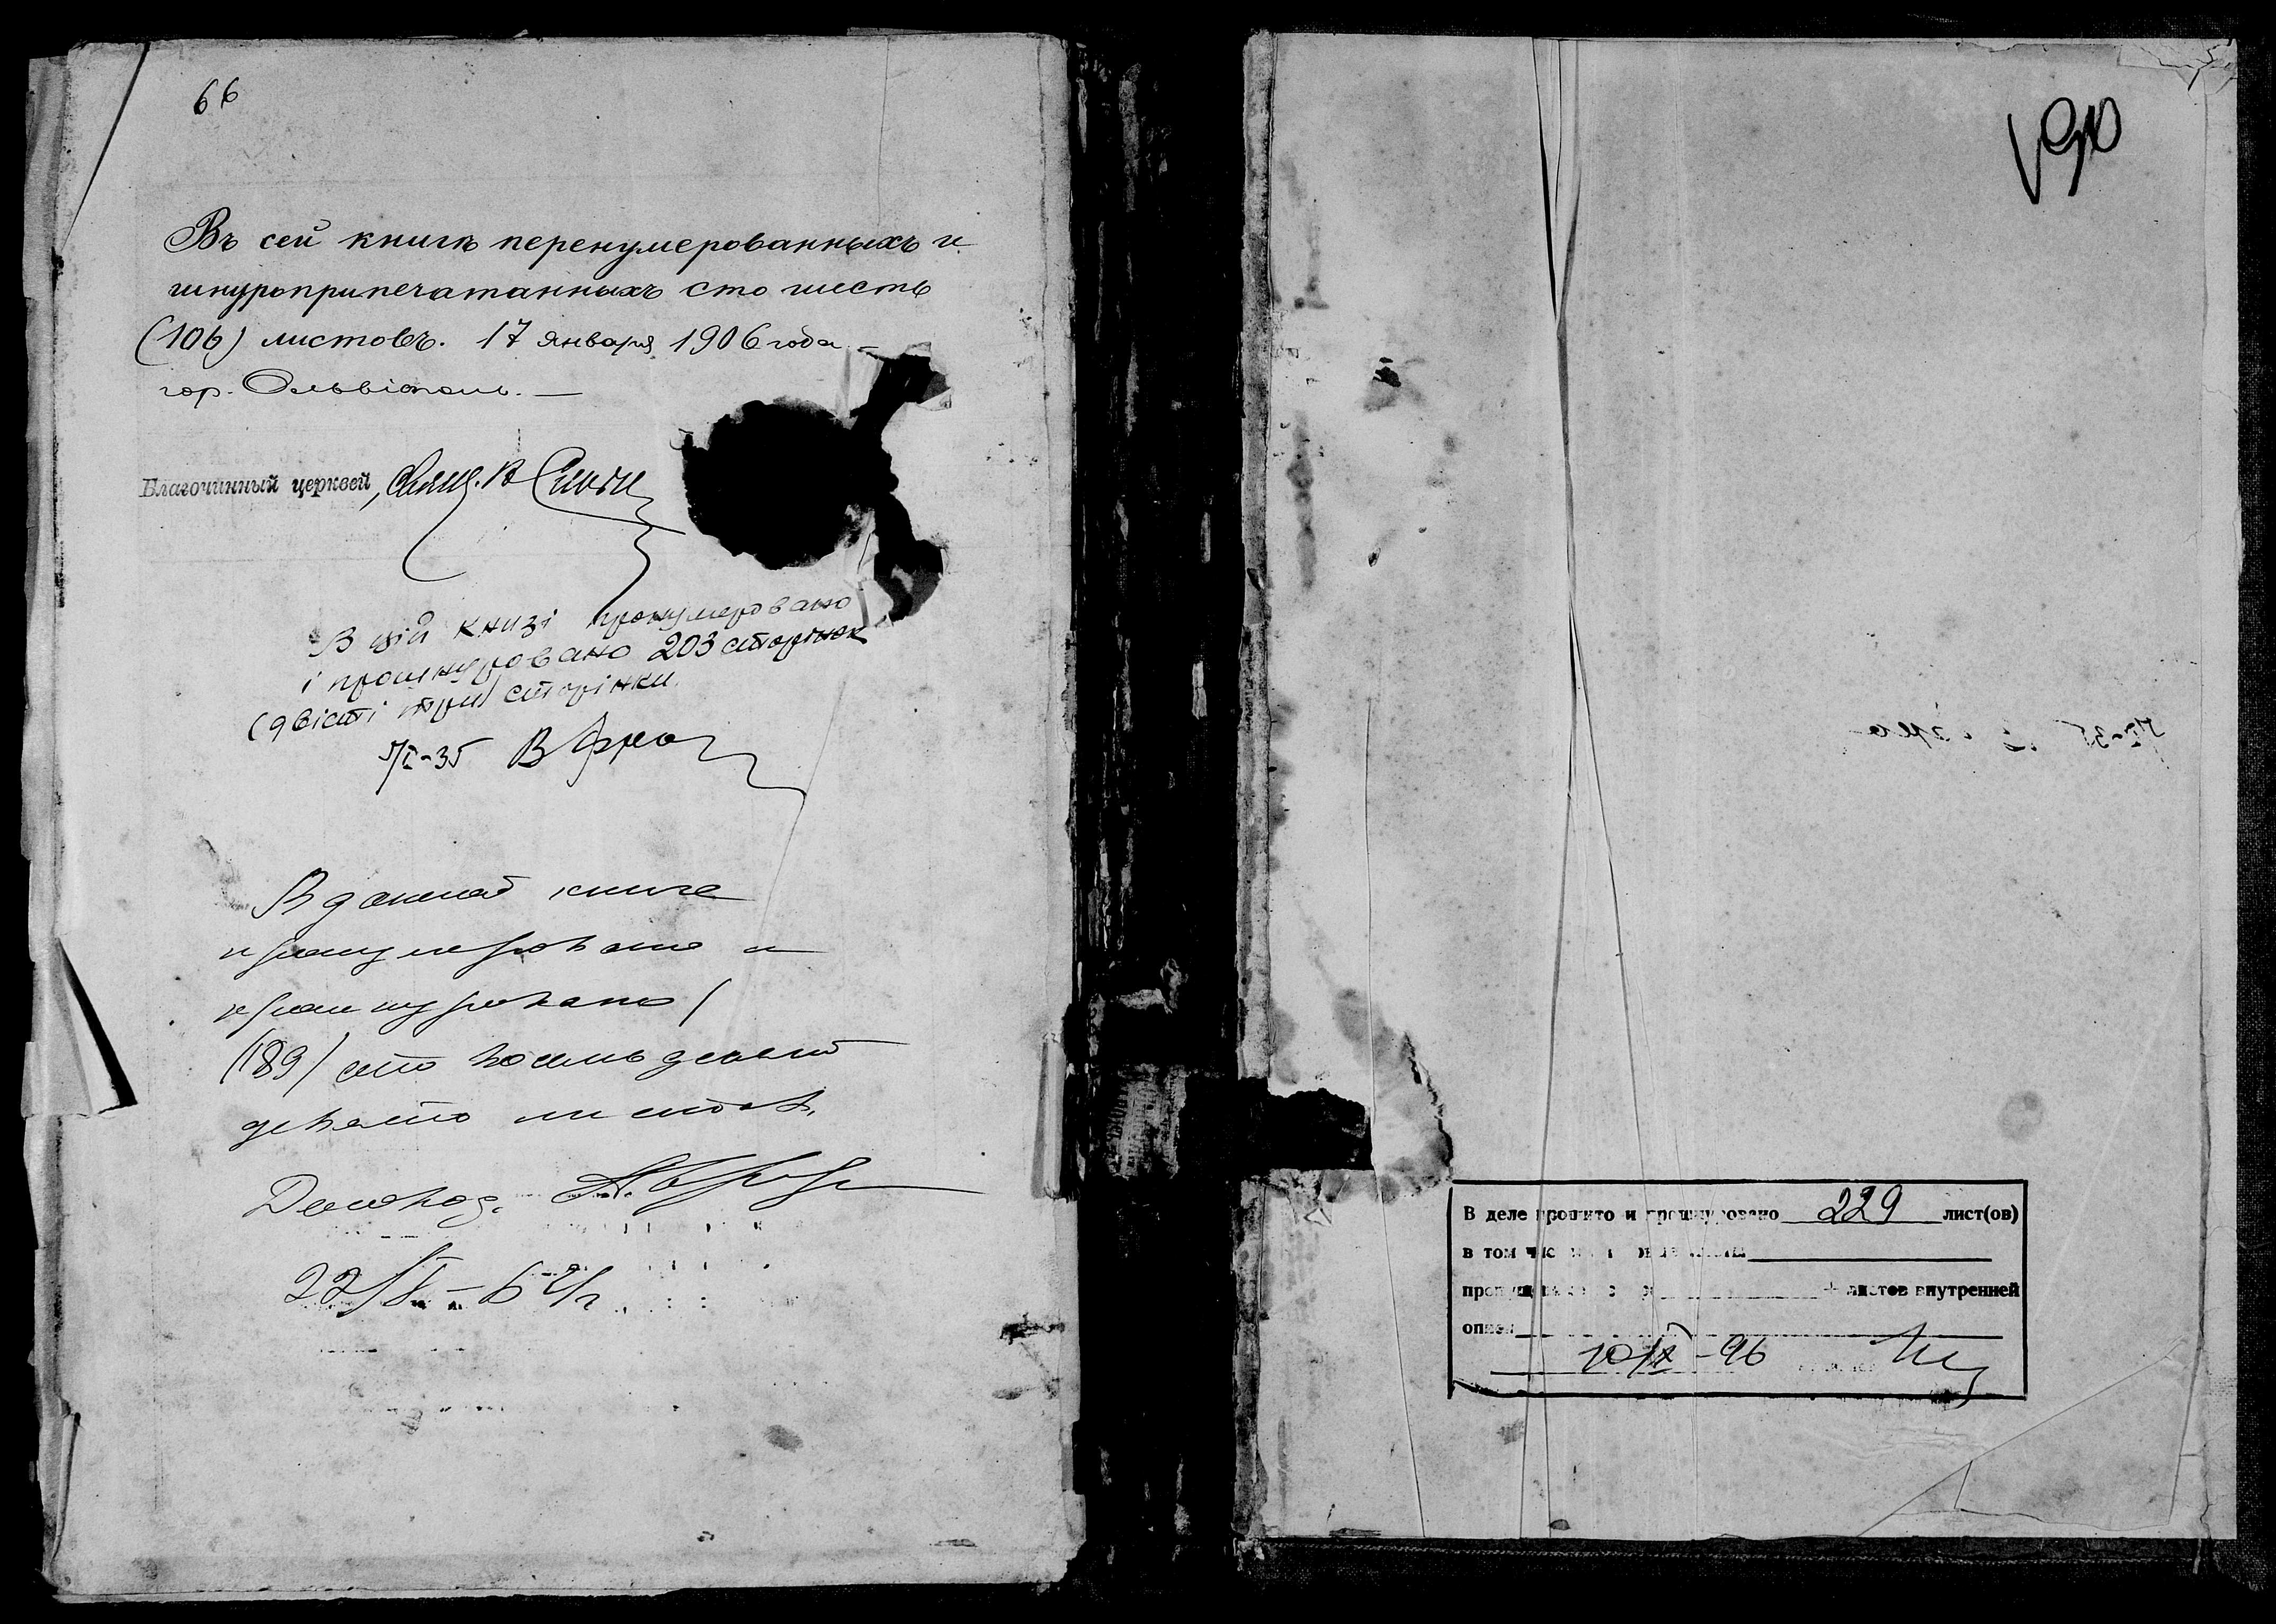 66
Въ сей книгѣ перенумерованныхъ и
шнуроприпечатанныхъ сто шесть
(106) листовъ. 17 января 1906 года. —
гор. Ольвіополь. —
Благочинный церквей, Свящ. В.
В цій книзі пронумеровано
і прошнуровано 203 сторінок
(двісті три) сторінки.
5/I-35 В
В данной книге
пронумеровано и
прошнуровано (
(189) сто восемьдесят
девять листов.
Делопод.
190
В деле прошито и прошнуровано 229 лист(ов)
в том числе
листов внутренней
описи
10/IX-96